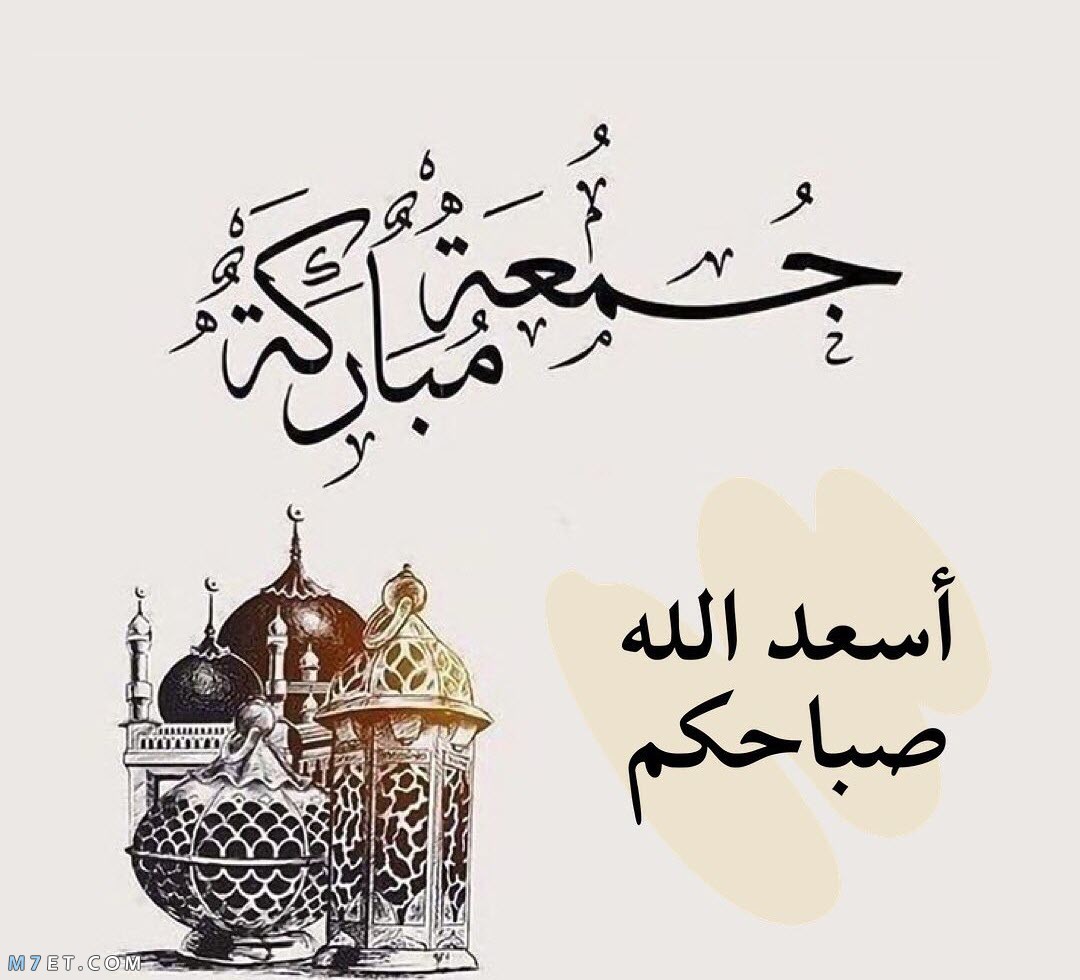 جُمُعَة
مُبَارَكَةٌ
أسعد الله
صباحكم
M7ET.COM